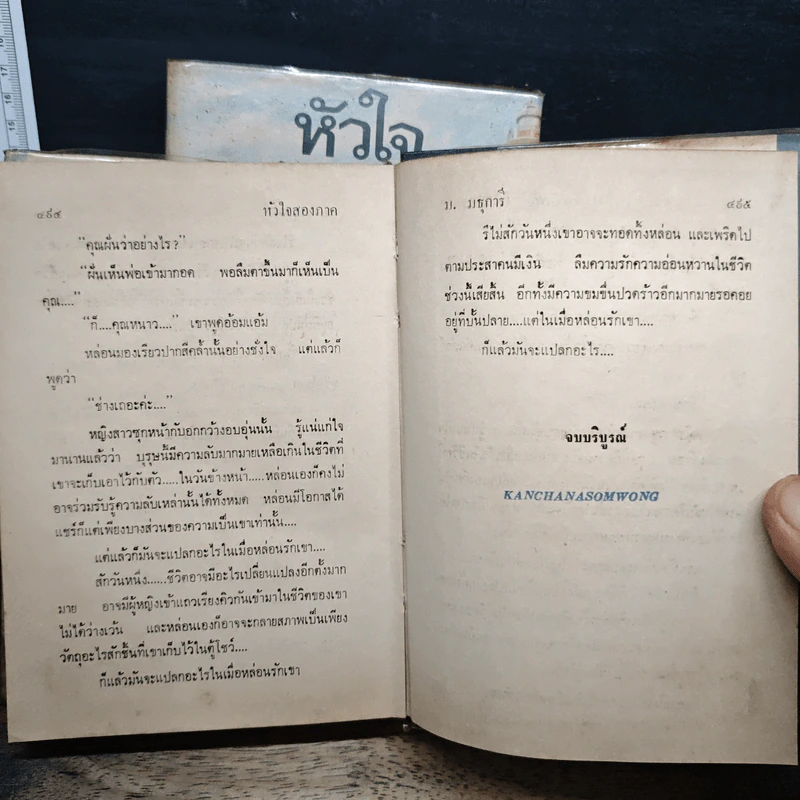 หัวใจ
๔๙๔ หัวใจสองภาค
"คุณฝันว่าอย่างไร?"
"ฝันเห็นพ่อเข้ามากอด พอลืมตาขึ้นมาก็เห็นเป็น
คุณ...."
"ก็....คุณหนาว...." เขาพูดอ้อมแอ้ม
หล่อนมองเรียวปากสีคล้ำนั้นอย่างชั่งใจ แต่แล้วก็
พูดว่า
"ช่างเถอะค่ะ...."
หญิงสาวซุกหน้ากับอกกว้างอบอุ่นนั้น รู้แน่แก่ใจ
มานานแล้วว่า บุรุษนี้มีความลับมากมายเหลือเกินในชีวิตที่
เขาจะเก็บเอาไว้กับตัว.....ในวันข้างหน้า.....หล่อนเองก็คงไม่
อาจร่วมรับรู้ความลับเหล่านั้นได้ทั้งหมด หล่อนมีโอกาสได้
แชร์ก็แต่เพียงบางส่วนของความเป็นเขาเท่านั้น....
แต่แล้วก็มันจะแปลกอะไรในเมื่อหล่อนรักเขา....
สักวันหนึ่ง......ชีวิตอาจมีอะไรเปลี่ยนแปลงอีกตั้งมาก
มาย อาจมีผู้หญิงเข้าแถวเรียงคิวกันเข้ามาในชีวิตของเขา
ไม่ได้ว่างเว้น และหล่อนเองก็อาจจะกลายสภาพเป็นเพียง
วัตถุอะไรสักชิ้นที่เขาเก็บไว้ในตู้โชว์....
ก็แล้วมันจะแปลกอะไรในเมื่อหล่อนรักเขา
ม. มธุการี ๔๙๕
รึไม่สักวันหนึ่งเขาอาจจะทอดทิ้งหล่อน และเพริดไป
ตามประสาคนมีเงิน ลืมความรักความอ่อนหวานในชีวิต
ช่วงนี้เสียสิ้น อีกทั้งมีความขมขื่นปวดร้าวอีกมากมายรอคอย
อยู่ที่บั้นปลาย....แต่ในเมื่อหล่อนรักเขา....
ก็แล้วมันจะแปลกอะไร....
จบบริบูรณ์
KANCHANASOMWONG
15
16
17